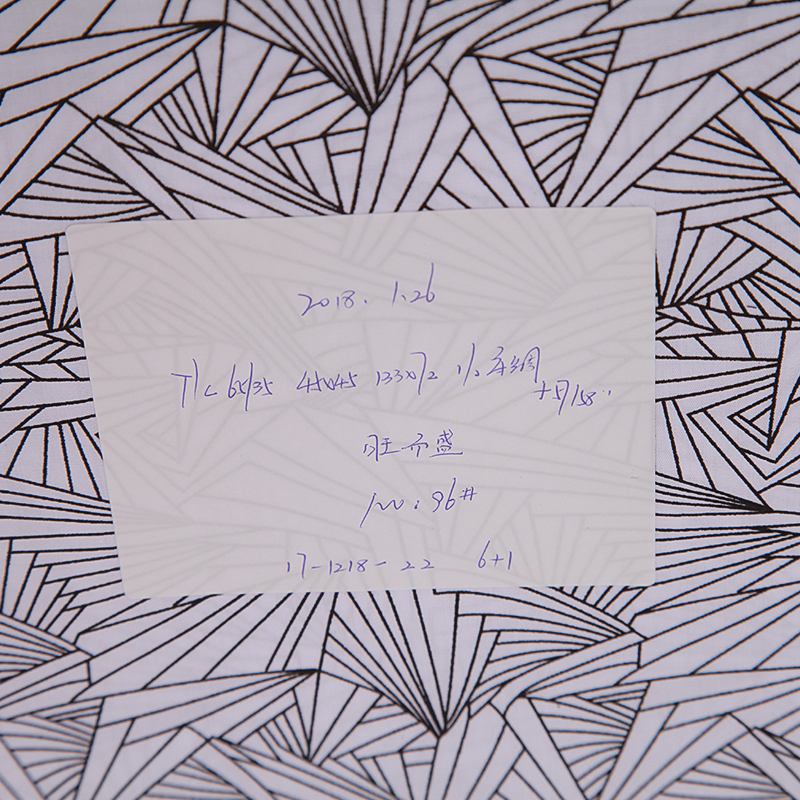 2018. 1.26
T/C 65/35 45x45 133x72 1/2 府绸
57/58"
旺 盛
NO: 96#
17-1218-22 6+1